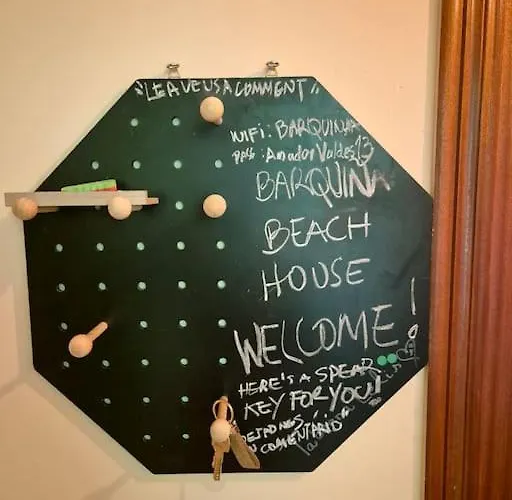 "LEAVE US A COMMENT"
WiFi: BARQUINHA
pass: AmadorValdes13
BARQUINA
BEACH
HOUSE
WELCOME!
HERE'S A SPEAR
KEY FOR YOU!
"DEJADNOS
UN COMENTARIO"